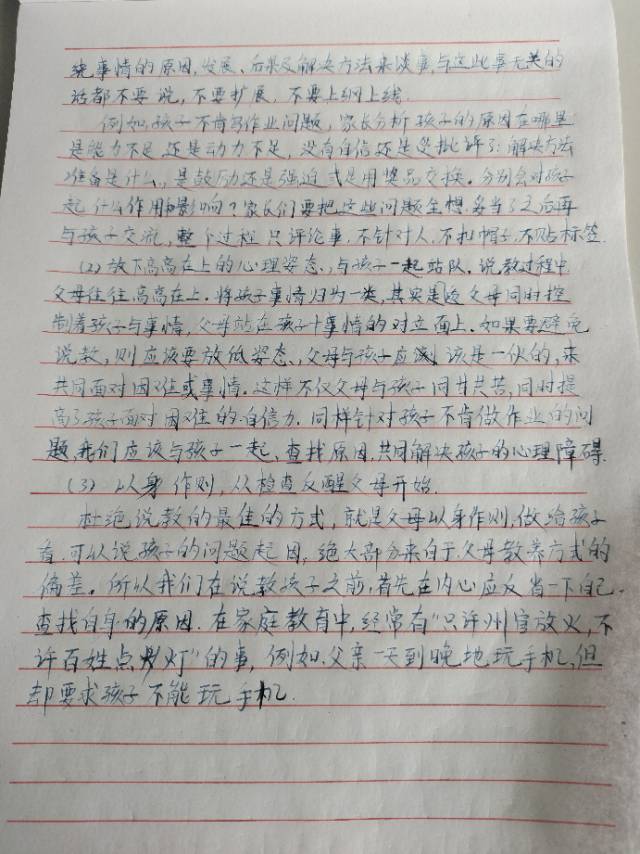 绕事情的原因,发展、后果及解决方法来谈事,与这些事无关的
话都不要说,不要扩展,不要上纲上线.
例如,孩子不肯写作业问题,家长分析孩子的原因在哪里
是能力不足还是动力不足,没有自信还是受批评了:解决方法
准备是什么,是鼓励还是强迫式是用奖品交换.分别会对孩子
起什么作用和影响?家长们要把这些问题全想妥当了之后再
与孩子交流,整个过程只评论事,不针对人,不扣帽子,不贴标签
(2)放下高高在上的心理姿态,与孩子一起站队.说教过程中
父母往往高高在上.将孩子事情归为一类,其实是父母同时控
制着孩子与事情,父母站在孩子+事情的对立面上.如果要避免
说教,则应该要放低姿态,父母与孩子应该是一伙的,来
共同面对困难或事情.这样不仅父母与孩子同甘共苦,同时提
高了孩子面对困难的自信力.同样针对孩子不肯做作业的问
题,我们应该与孩子一起,查找原因,共同解决孩子的心理障碍.
(3)以身作则,从检查反醒父母开始.
杜绝说教的最佳的方式,就是父母以身作则,做给孩子
看.可以说孩子的问题起因,绝大部分来自于父母教养方式的
偏差。所以我们在说教孩子之前,首先在内心应反省一下自己.
查找自身的原因.在家庭教育中,经常有"只许州官放火,不
许百姓点灯"的事,例如.父亲一天到晚地玩手机,但
却要求孩子不能玩手机.